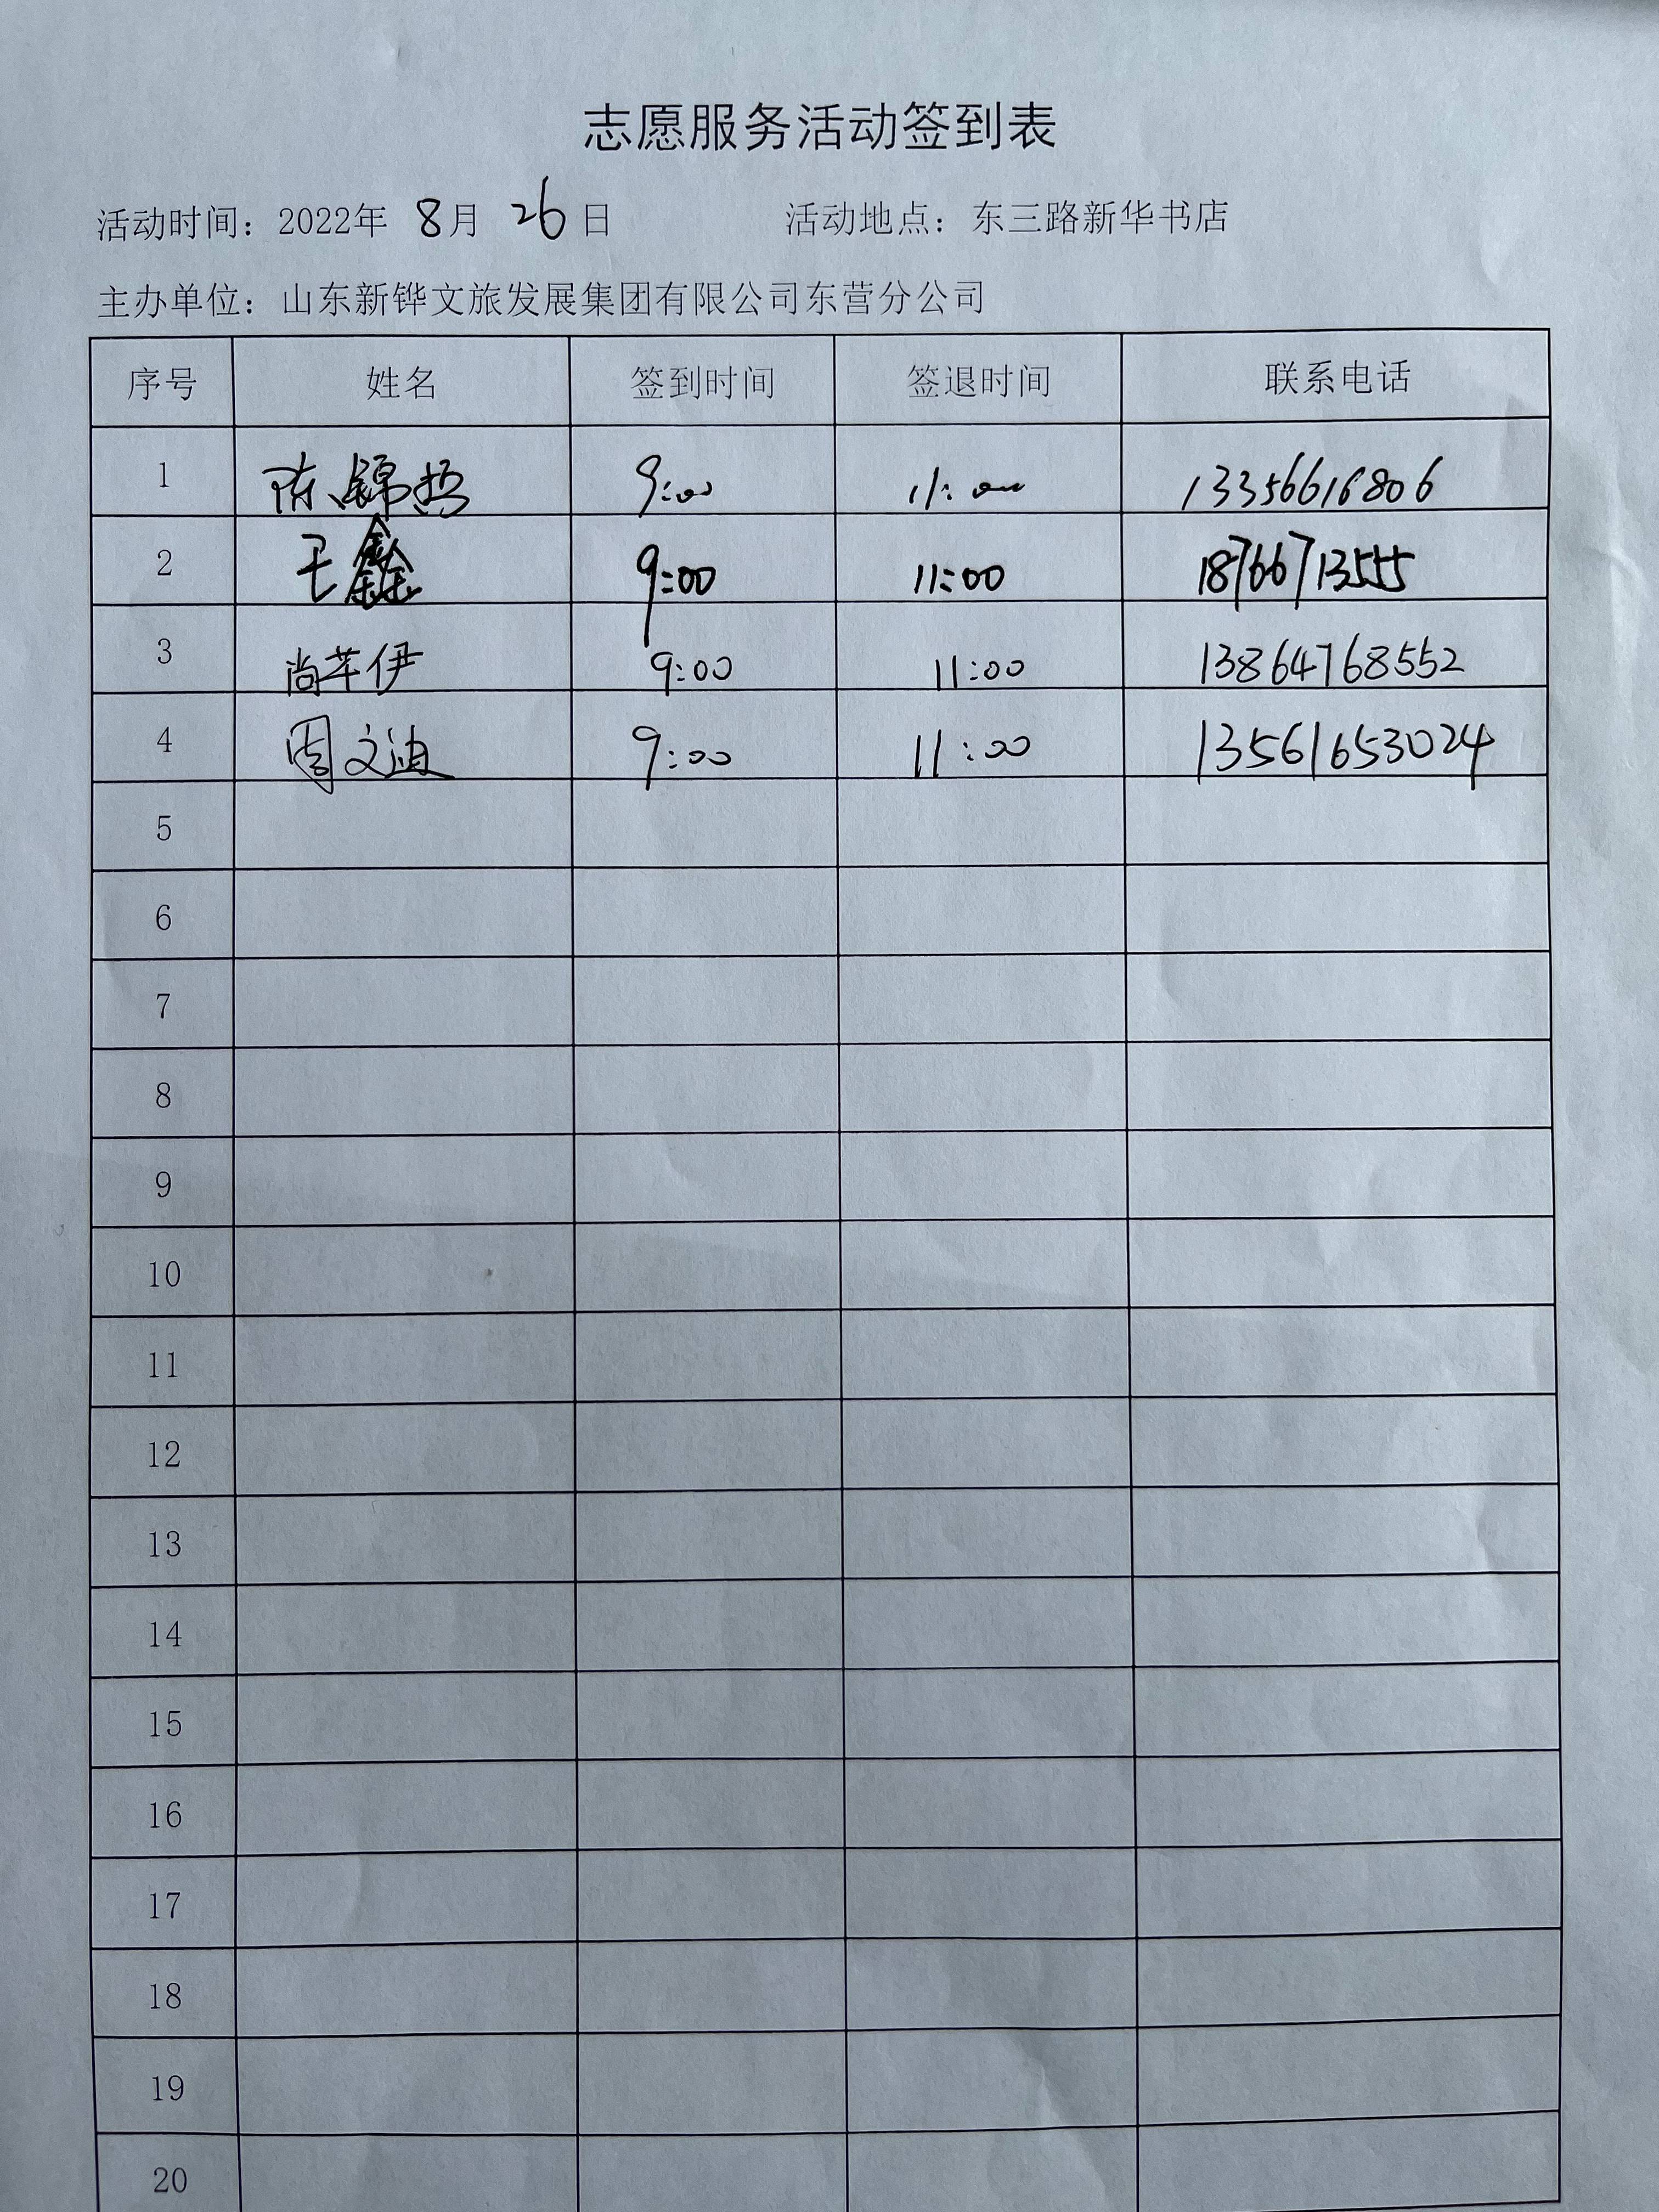 志愿服务活动签到表
活动时间：2022年 8月 26日 活动地点：东三路新华书店
主办单位：山东新铧文旅发展集团有限公司东营分公司
序号 姓名 签到时间 签退时间 联系电话
1 陈锦 9:00 11:00 13356616806
2 王鑫 9:00 11:00 18766713555
3 尚芊伊 9:00 11:00 13864768552
4 周文迪 9:00 11:00 13561653024
5
6
7
8
9
10
11
12
13
14
15
16
17
18
19
20